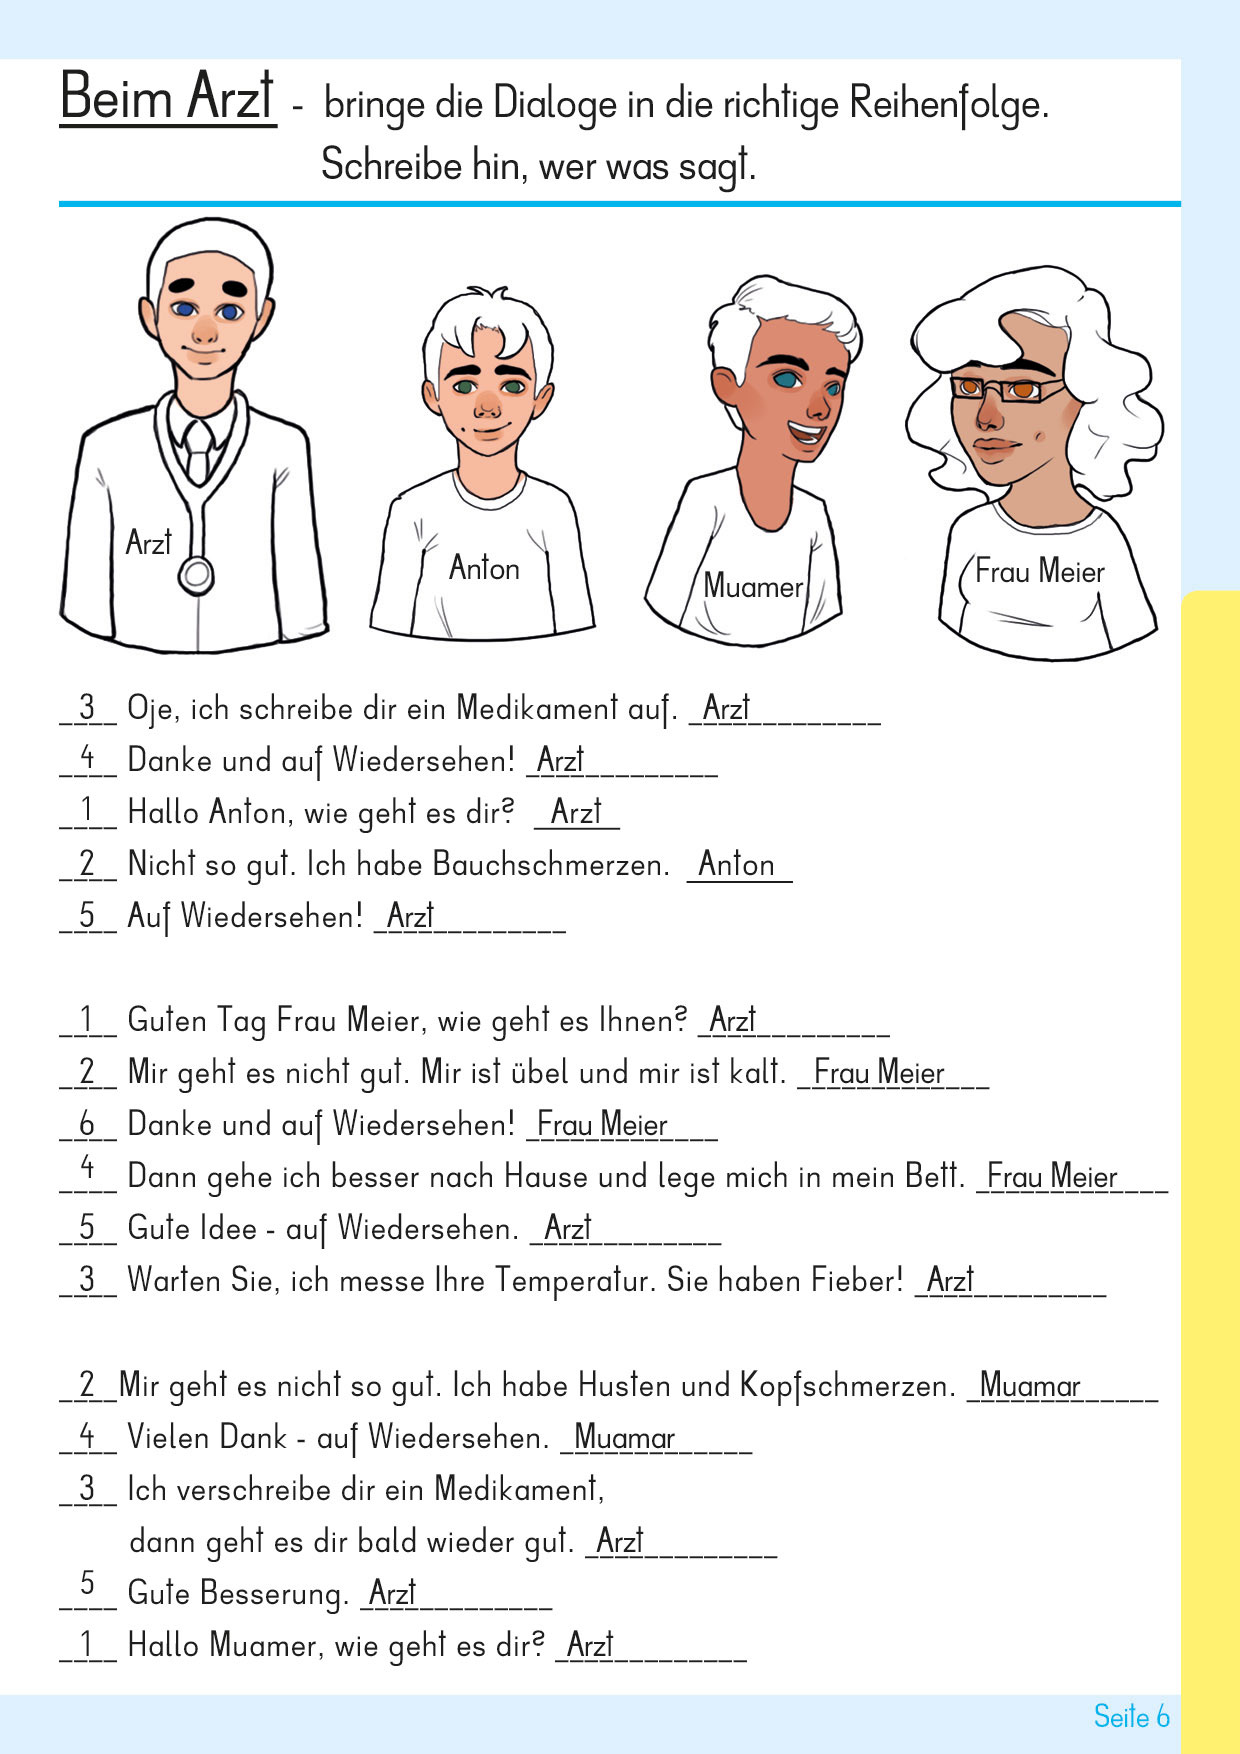 Beim Arzt - bringe die Dialoge in die richtige Reihenfolge.
Schreibe hin, wer was sagt.
Arzt
Anton
Muamer
Frau Meier
3 Oje, ich schreibe dir ein Medikament auf. Arzt
4 Danke und auf Wiedersehen! Arzt
1 Hallo Anton, wie geht es dir? Arzt
2 Nicht so gut. Ich habe Bauchschmerzen. Anton
5 Auf Wiedersehen! Arzt
1 Guten Tag Frau Meier, wie geht es Ihnen? Arzt
2 Mir geht es nicht gut. Mir ist übel und mir ist kalt. Frau Meier
6 Danke und auf Wiedersehen! Frau Meier
4 Dann gehe ich besser nach Hause und lege mich in mein Bett. Frau Meier
5 Gute Idee - auf Wiedersehen. Arzt
3 Warten Sie, ich messe Ihre Temperatur. Sie haben Fieber! Arzt
2 Mir geht es nicht so gut. Ich habe Husten und Kopfschmerzen. Muamar
4 Vielen Dank - auf Wiedersehen. Muamar
3 Ich verschreibe dir ein Medikament,
dann geht es dir bald wieder gut. Arzt
5 Gute Besserung. Arzt
1 Hallo Muamer, wie geht es dir? Arzt
Seite 6